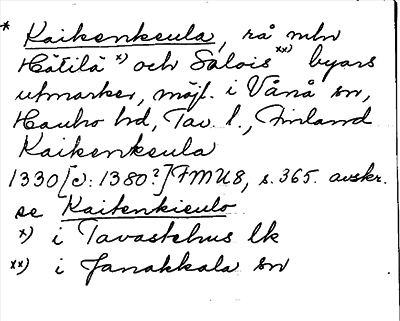 * Kaikenkeula, rå mln
Hätilä x) och Salois xx) byars
utmarker, möjl. i Vånå sn,
Hauho hd, Tav. l., Finland
Kaikenkeula
1330[ɔ: 1380?] FMU8, s. 365. avskr.
se Kaitenkieulo
x) i Tavastehus lk
xx) i Janakkala sn